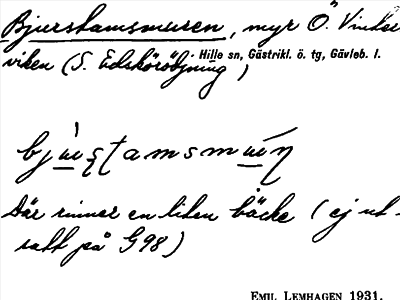 Bjurstamsmuren, myr Ö. Vinter-
viken (S. Edsköröjning)
Hille sn, Gästrikl. ö. tg, Gävleb. l.
Där rinner en liten bäcke (ej ut-
satt på G98)
EMIL LEMHAGEN 1931.